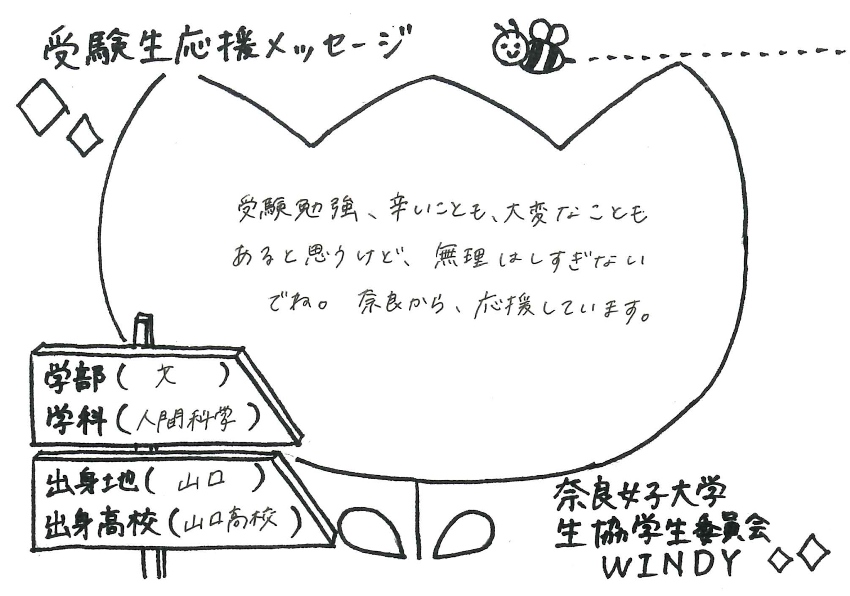 受験生応援メッセージ
受験勉強、辛いことも、大変なことも
あると思うけど、無理はしすぎない
でね。 奈良から、応援しています。
学部( 文 )
学科(人間科学)
出身地( 山口 )
出身高校(山口高校)
奈良女子大学
生協学生委員会
WINDY